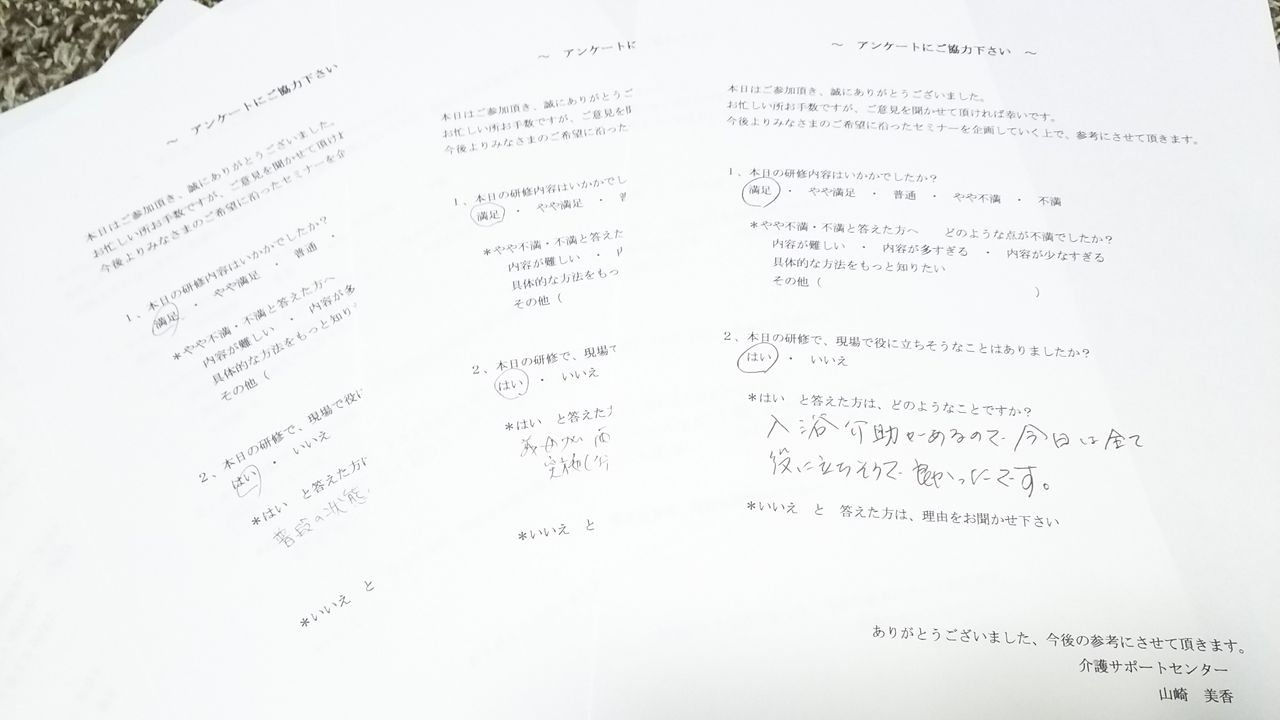 ～ アンケートにご協力下さい
本日はご参加頂き、誠にありがとうございました。
お忙しい所お手数ですが、ご意見を聞かせて頂け
今後よりみなさまのご希望に沿ったセミナーを企
1、本日の研修内容はいかがでしたか？
満足 ・ やや満足 ・ 普通 ・
＊やや不満・不満と答えた方へ
内容が難しい ・ 内容が多
具体的な方法をもっと知り
その他（
2、本日の研修で、現場で役に
はい ・ いいえ
＊はい と答えた方に
普段の状態
＊いいえ と
～ アンケートに
本日はご参加頂き、誠にありがとうご
お忙しい所お手数ですが、ご意見を
今後よりみなさまのご希望に沿った
1、本日の研修内容はいかがでし
満足 ・ やや満足 ・
＊やや不満・不満と答えた
内容が難しい ・
具体的な方法をもっ
その他（
2、本日の研修で、現場で
はい ・ いいえ
＊はい と答えた
＊いいえ と
～ アンケートにご協力下さい ～
本日はご参加頂き、誠にありがとうございました。
お忙しい所お手数ですが、ご意見を聞かせて頂ければ幸いです。
今後よりみなさまのご希望に沿ったセミナーを企画していく上で、参考にさせて頂きます。
1、本日の研修内容はいかかでしたか？
満足 ・ やや満足 ・ 普通 ・ やや不満 ・ 不満
＊やや不満・不満と答えた方へ どのような点が不満でしたか？
内容が難しい ・ 内容が多すぎる ・ 内容が少なすぎる
具体的な方法をもっと知りたい
その他（ ）
2、本日の研修で、現場で役に立ちそうなことはありましたか？
はい ・ いいえ
＊はい と答えた方は、どのようなことですか？
入浴介助があるので今日は全て
役に立ちそうで良かったです。
＊いいえ と 答えた方は、理由をお聞かせ下さい
ありがとうございました、今後の参考にさせて頂きます。
介護サポートセンター
山崎 美香